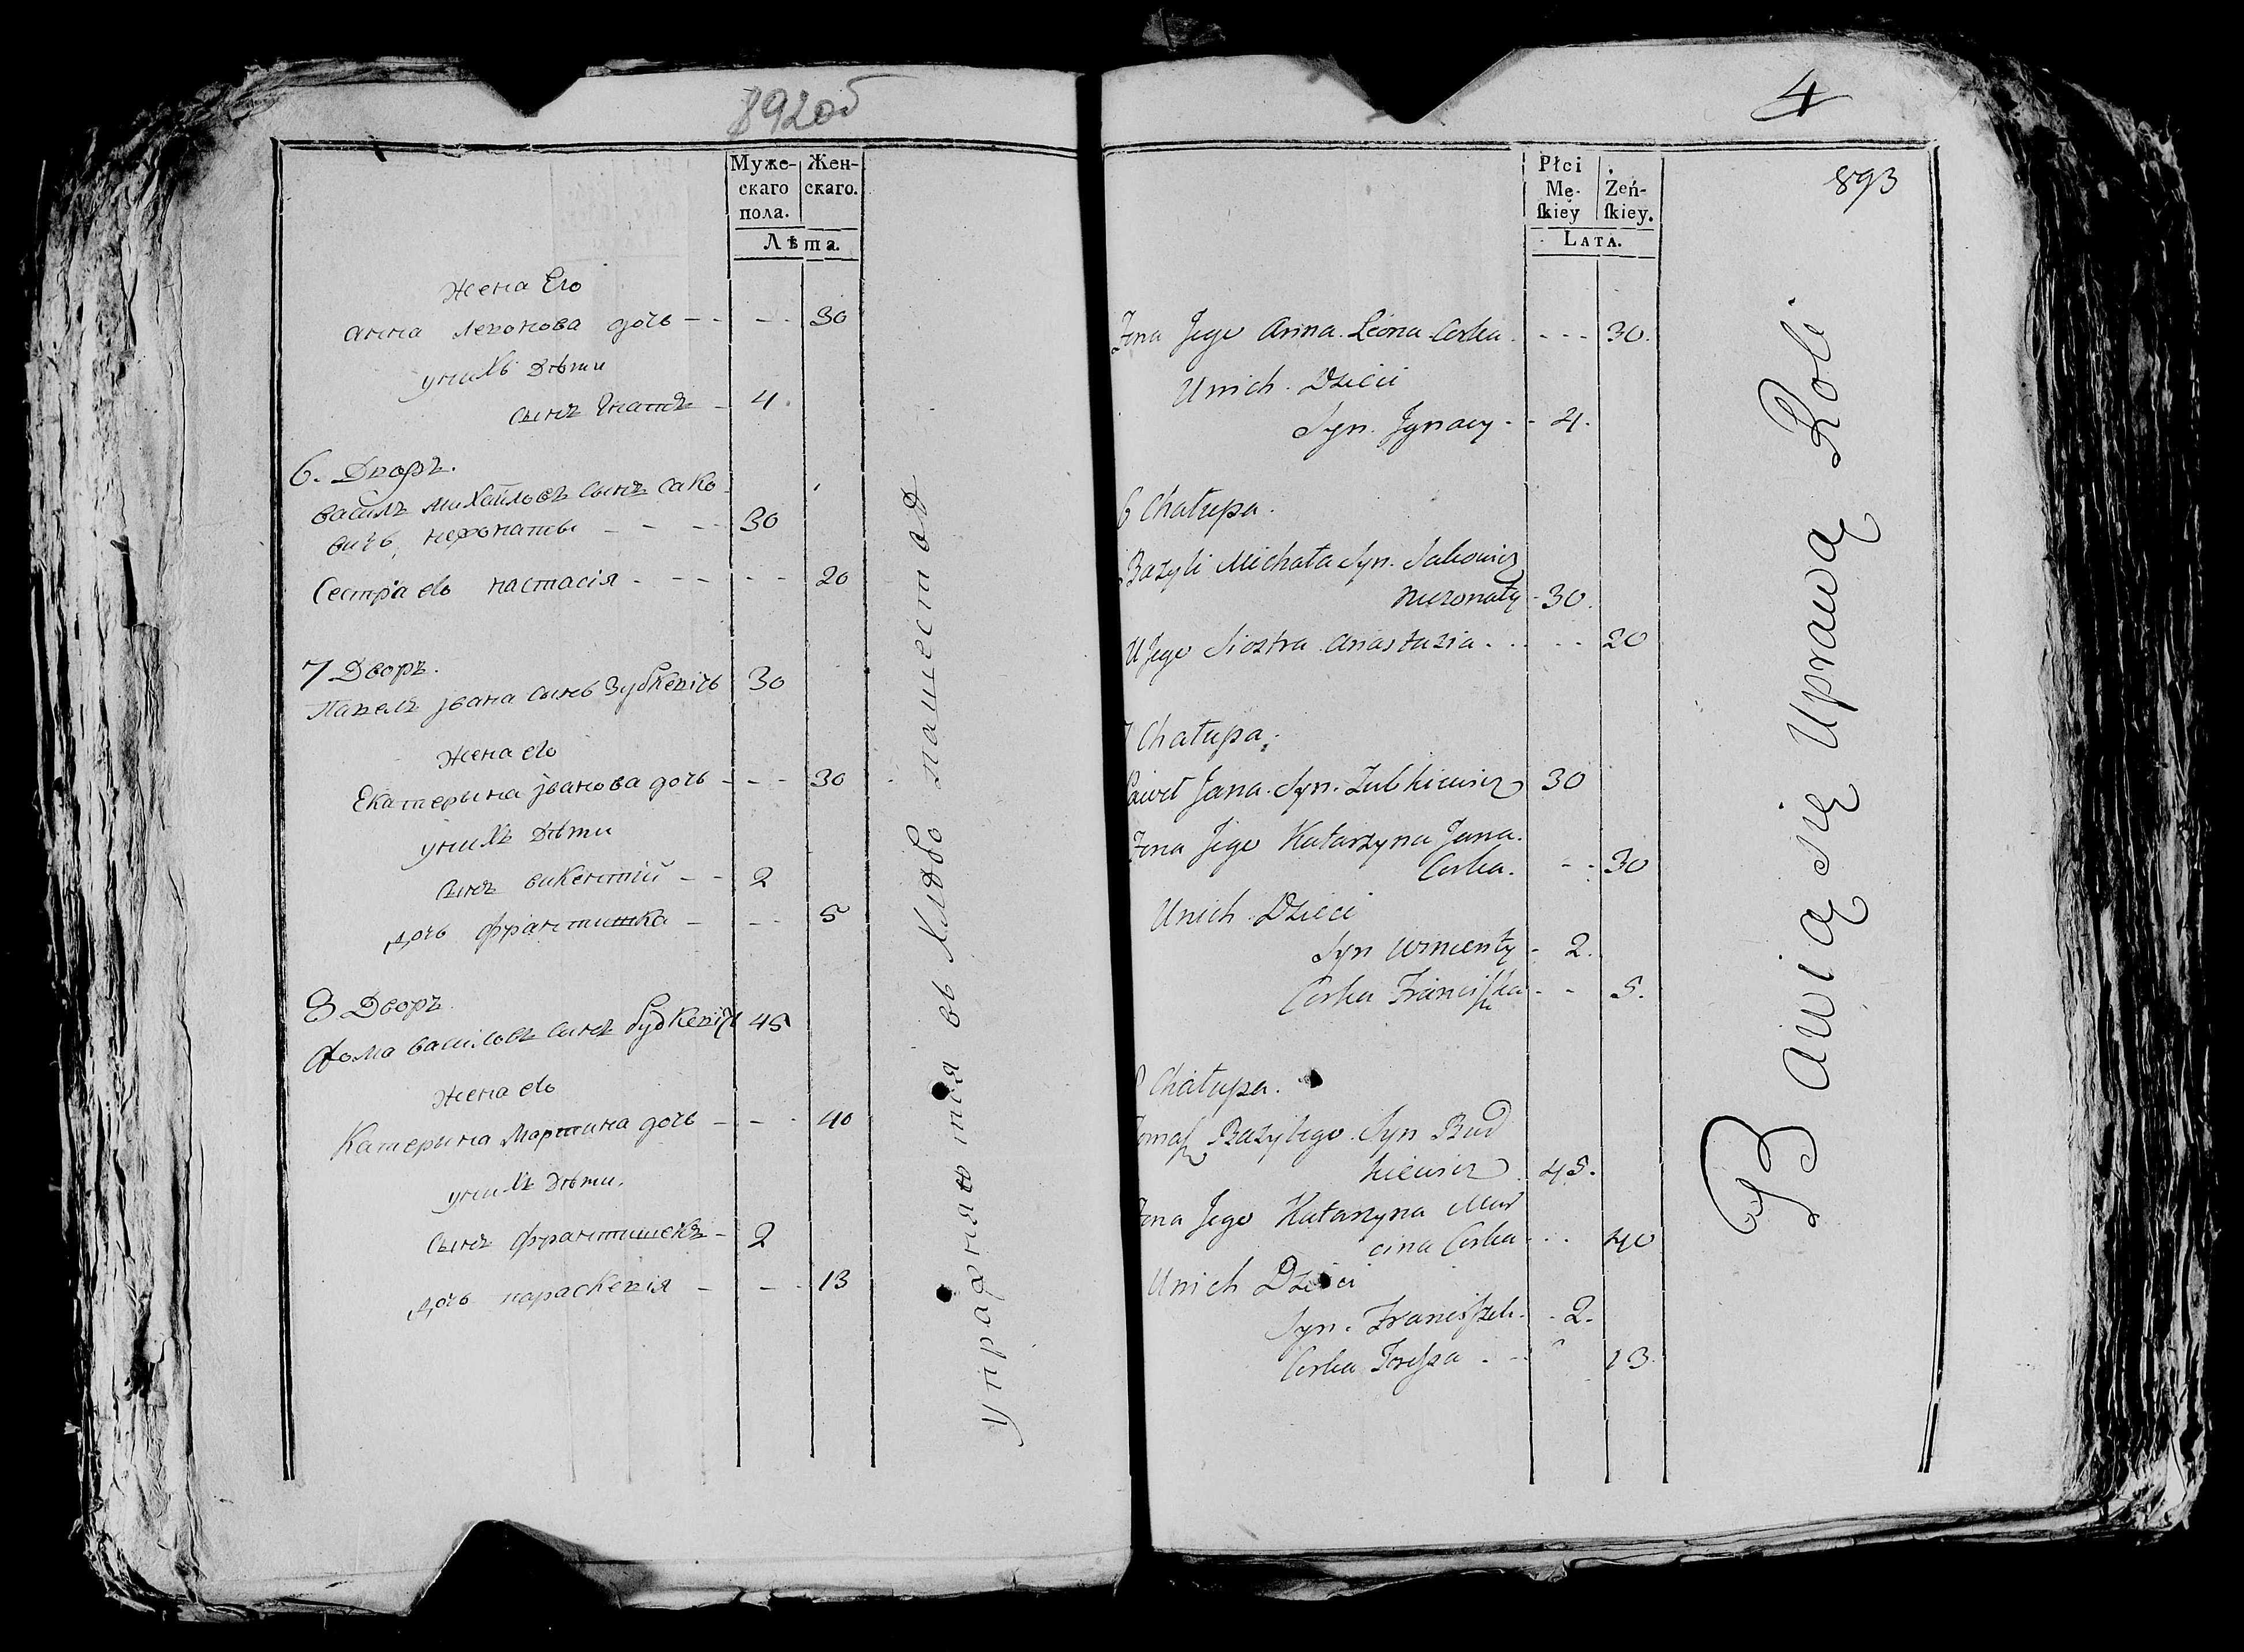 892об
Муже-
скаго
пола.
Жен-
скаго.
Лѣта.
жена Его
анна леонова дочь - - - - 30
унихъ Дѣти
сынъ Игнатъ - 4.
6. Дворъ.
василь михайловъ сынъ сако
вичъ, нежонаты - - - - 30
Сестра его настасія - - - - - 20
7 Дворъ.
Павелъ јвана сынъ Зубкевичъ 30
жена его
Екатерына јванова дочь - - - 30
унихъ Дѣти
сынъ викентий - - 2
дочь франтишка - - - 5
8 Дворъ.
Фома васильевъ сынъ Будкевичъ 45
жена его
Катерына Мартина дочь - - - 40
унихъ дѣти.
сынъ франтишекъ - 2
дочь параскевія - - - 13
упражняются въ хлѣбо пашестве
4
893
Płci
Mę-
ſkiey
Żeń-
ſkiey.
LATA.
Żona Jego Anna Leona Corka. - - - 30.
Unich Dzieci
Syn Jgnacy - - 4.
6 Chałupa.
Bazyli Michała Syn. Sakowicz
niezonaty - 30.
U Jego Siostra Anastazia . . - - 20
7 Chałupa.
Paweł Jana Syn. Zubkiewicz 30
Żona Jego Katarzyna Jana
Corka. - - 30
Unich Dzieci
Syn Wincenty - 2.
Corka Franciſzka - - 5.
8 Chałupa.
Tomaſz Bazylego Syn Bud
kiewicz 45.
Żona Jego Katarzyna Mar
cina Corka - . . 40
Unich Dzieci
Syn. Franciſzek. - 2.
Corka . - 13.
Bawią się Uprawą Roli